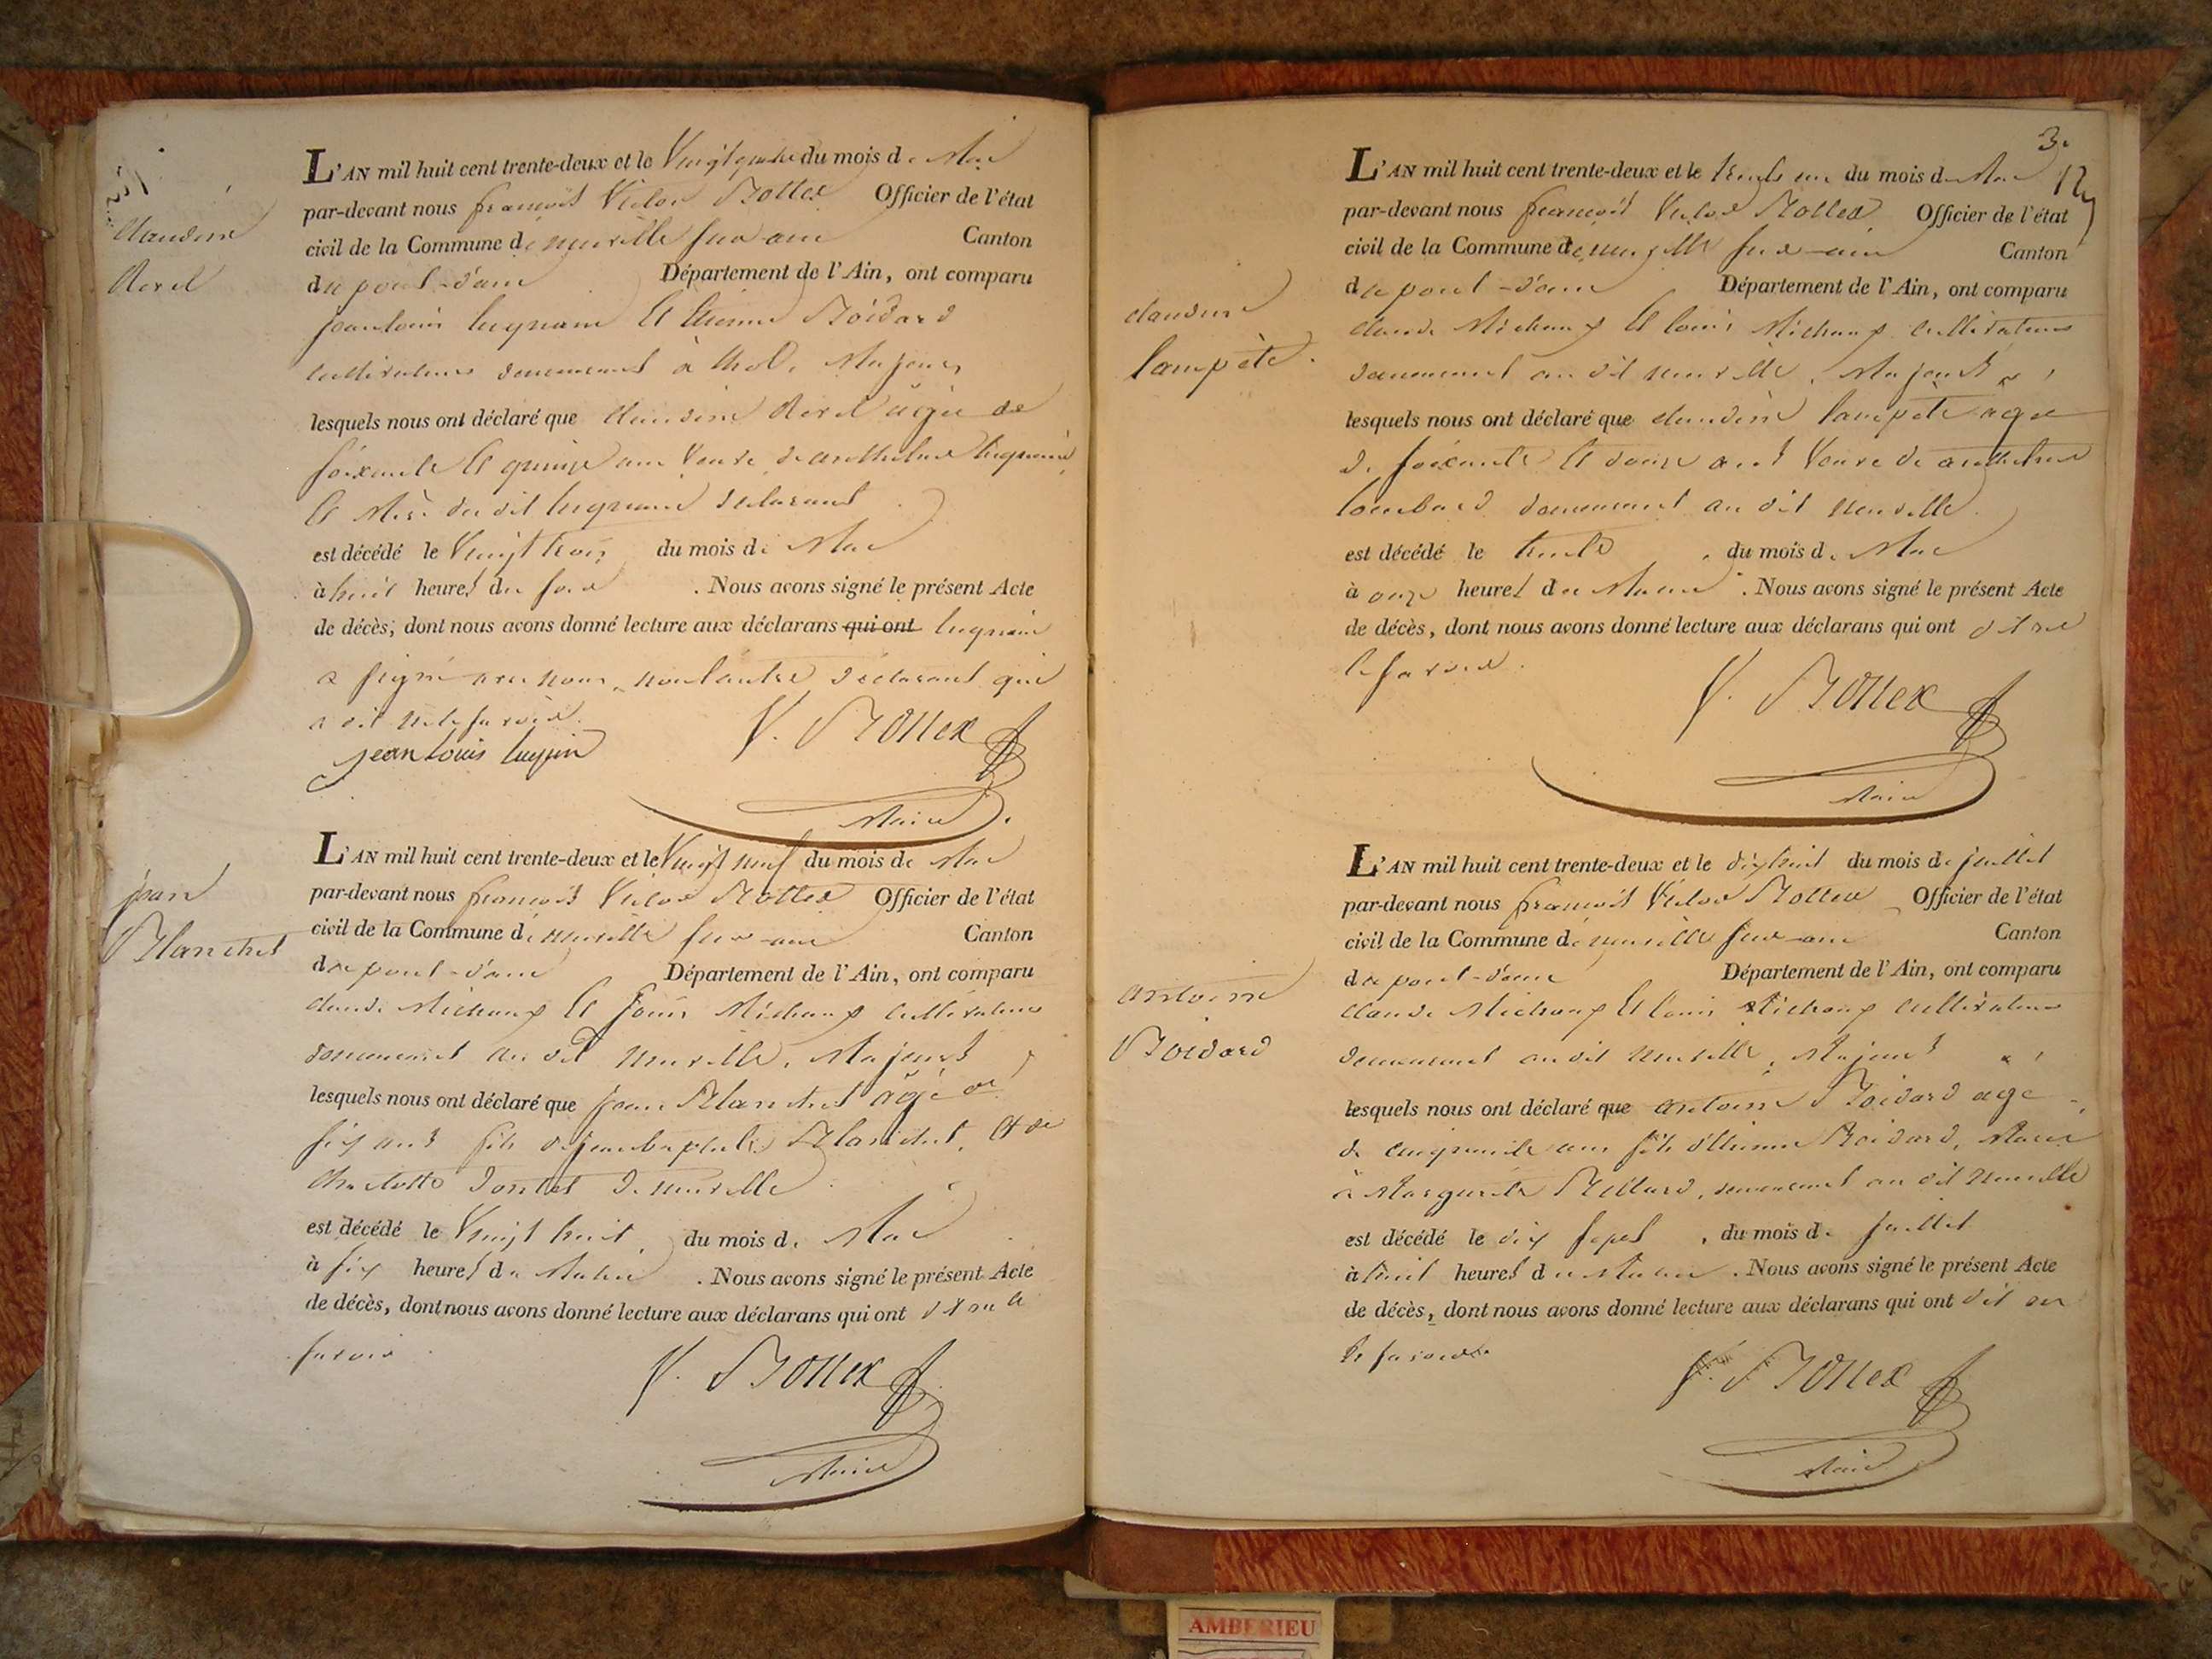 Claudine
L'AN mil huit cent trente-deux et le Vingt quatre du mois de Mai
par-devant nous françois Victor Bottex Officier de l'état
civil de la Commune de neuville sur ain Canton
du pont-d'ain Département de l'Ain, ont comparu
jean louis et Etienne Boidard
cultivateurs demeurant à thol, Majeurs
lesquels nous ont déclaré que Claudine âgée de
soixante et quinze ans Veuve de anthelme
et Mère du dit déclarant
est décédé le Vingt trois du mois de Mai
à huit heures du soir . Nous avons signé le présent Acte
de décès, dont nous avons donné lecture aux déclarans qui ont
a signé avec nous, non l'autre déclarant qui
a dit ne le savoir.
jean louis V. Bottex
Maire
jean
Blanchet
L'AN mil huit cent trente-deux et le Vingt neuf du mois de Mai
par-devant nous françois Victor Bottex Officier de l'état
civil de la Commune de neuville sur ain Canton
du pont-d'ain Département de l'Ain, ont comparu
claude Michaux et louis Michaux cultivateurs
demeurant au dit neuville, Majeurs
lesquels nous ont déclaré que jean Blanchet âgé de
six ans fils de jean baptiste Blanchet, et de
Charlotte de neuville
est décédé le Vingt huit du mois de Mai
à six heures du Matin . Nous avons signé le présent Acte
de décès, dont nous avons donné lecture aux déclarans qui ont dit ne le
savoir
V. Bottex
Maire
3.
12
claudine
lampète
L'AN mil huit cent trente-deux et le trente un du mois de Mai
par-devant nous françois Victor Bottex Officier de l'état
civil de la Commune de neuville sur ain Canton
du pont-d'ain Département de l'Ain, ont comparu
claude Michaux et louis Michaux cultivateurs
demeurant au dit neuville, Majeurs
lesquels nous ont déclaré que claudine lampète agée
de soixante et douze ans Veuve de anthelme
lombard demeurant au dit neuville.
est décédé le trente du mois de Mai
à onze heures du Matin . Nous avons signé le présent Acte
de décès, dont nous avons donné lecture aux déclarans qui ont dit ne
le savoir.
V. Bottex
Maire
antoine
Boidard
L'AN mil huit cent trente-deux et le dix huit du mois de juillet
par-devant nous françois Victor Bottex Officier de l'état
civil de la Commune de neuville sur ain Canton
du pont-d'ain Département de l'Ain, ont comparu
claude Michaux et louis Michaux cultivateurs
demeurant au dit neuville, Majeurs
lesquels nous ont déclaré que antoine Boidard agé
de cinquante ans fils d'Etienne Boidard, Marié
à Marguerite demeurant au dit neuville
est décédé le dix sept du mois de juillet
à huit heures du Matin . Nous avons signé le présent Acte
de décès, dont nous avons donné lecture aux déclarans qui ont dit ne
le savoir
V. Bottex
Maire
AMBERIEU